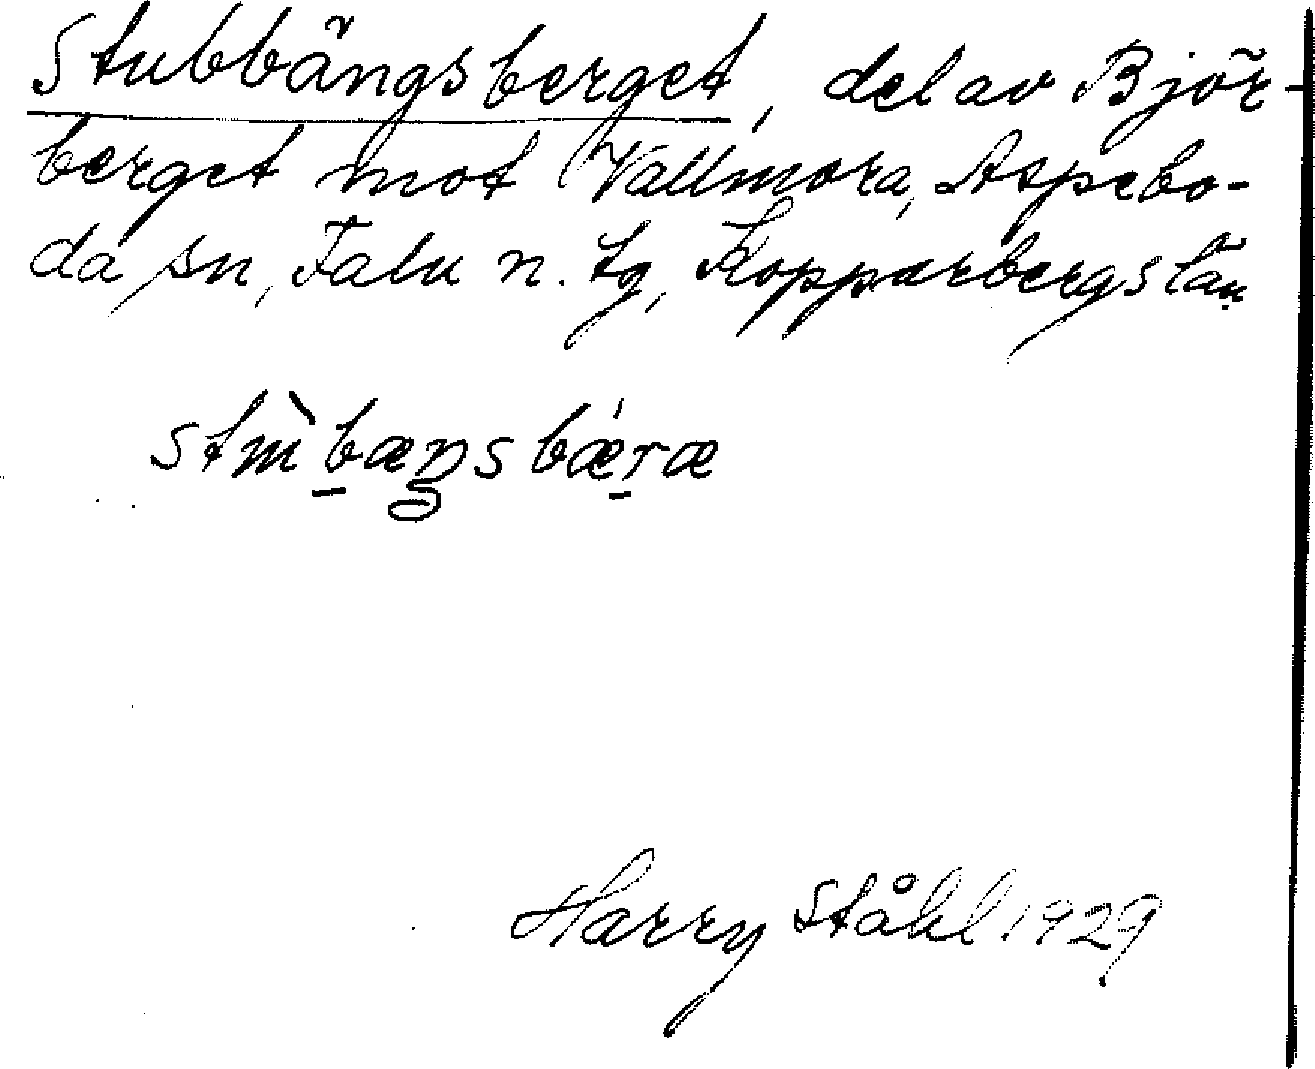 Stubbängsberget, del av Björ-
berget mot Vallmora, Aspebo-
da sn, Falu n. tg, Kopparbergs län
Harry Ståhl 1929